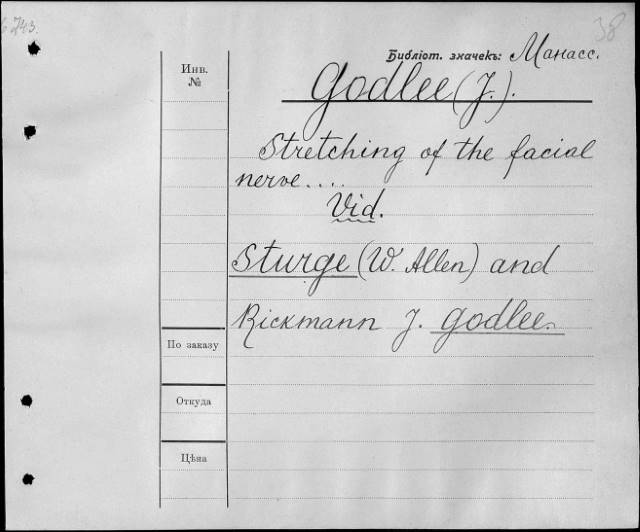 6243.
38
Библіот. значекъ: Манасс.
Инв.
№
Godlee (J.).
Stretching of the facial
nerve....
Vid.
Sturge (W. Allen) and
Rickmann J. Godlee.
По заказу
Откуда
Цѣна